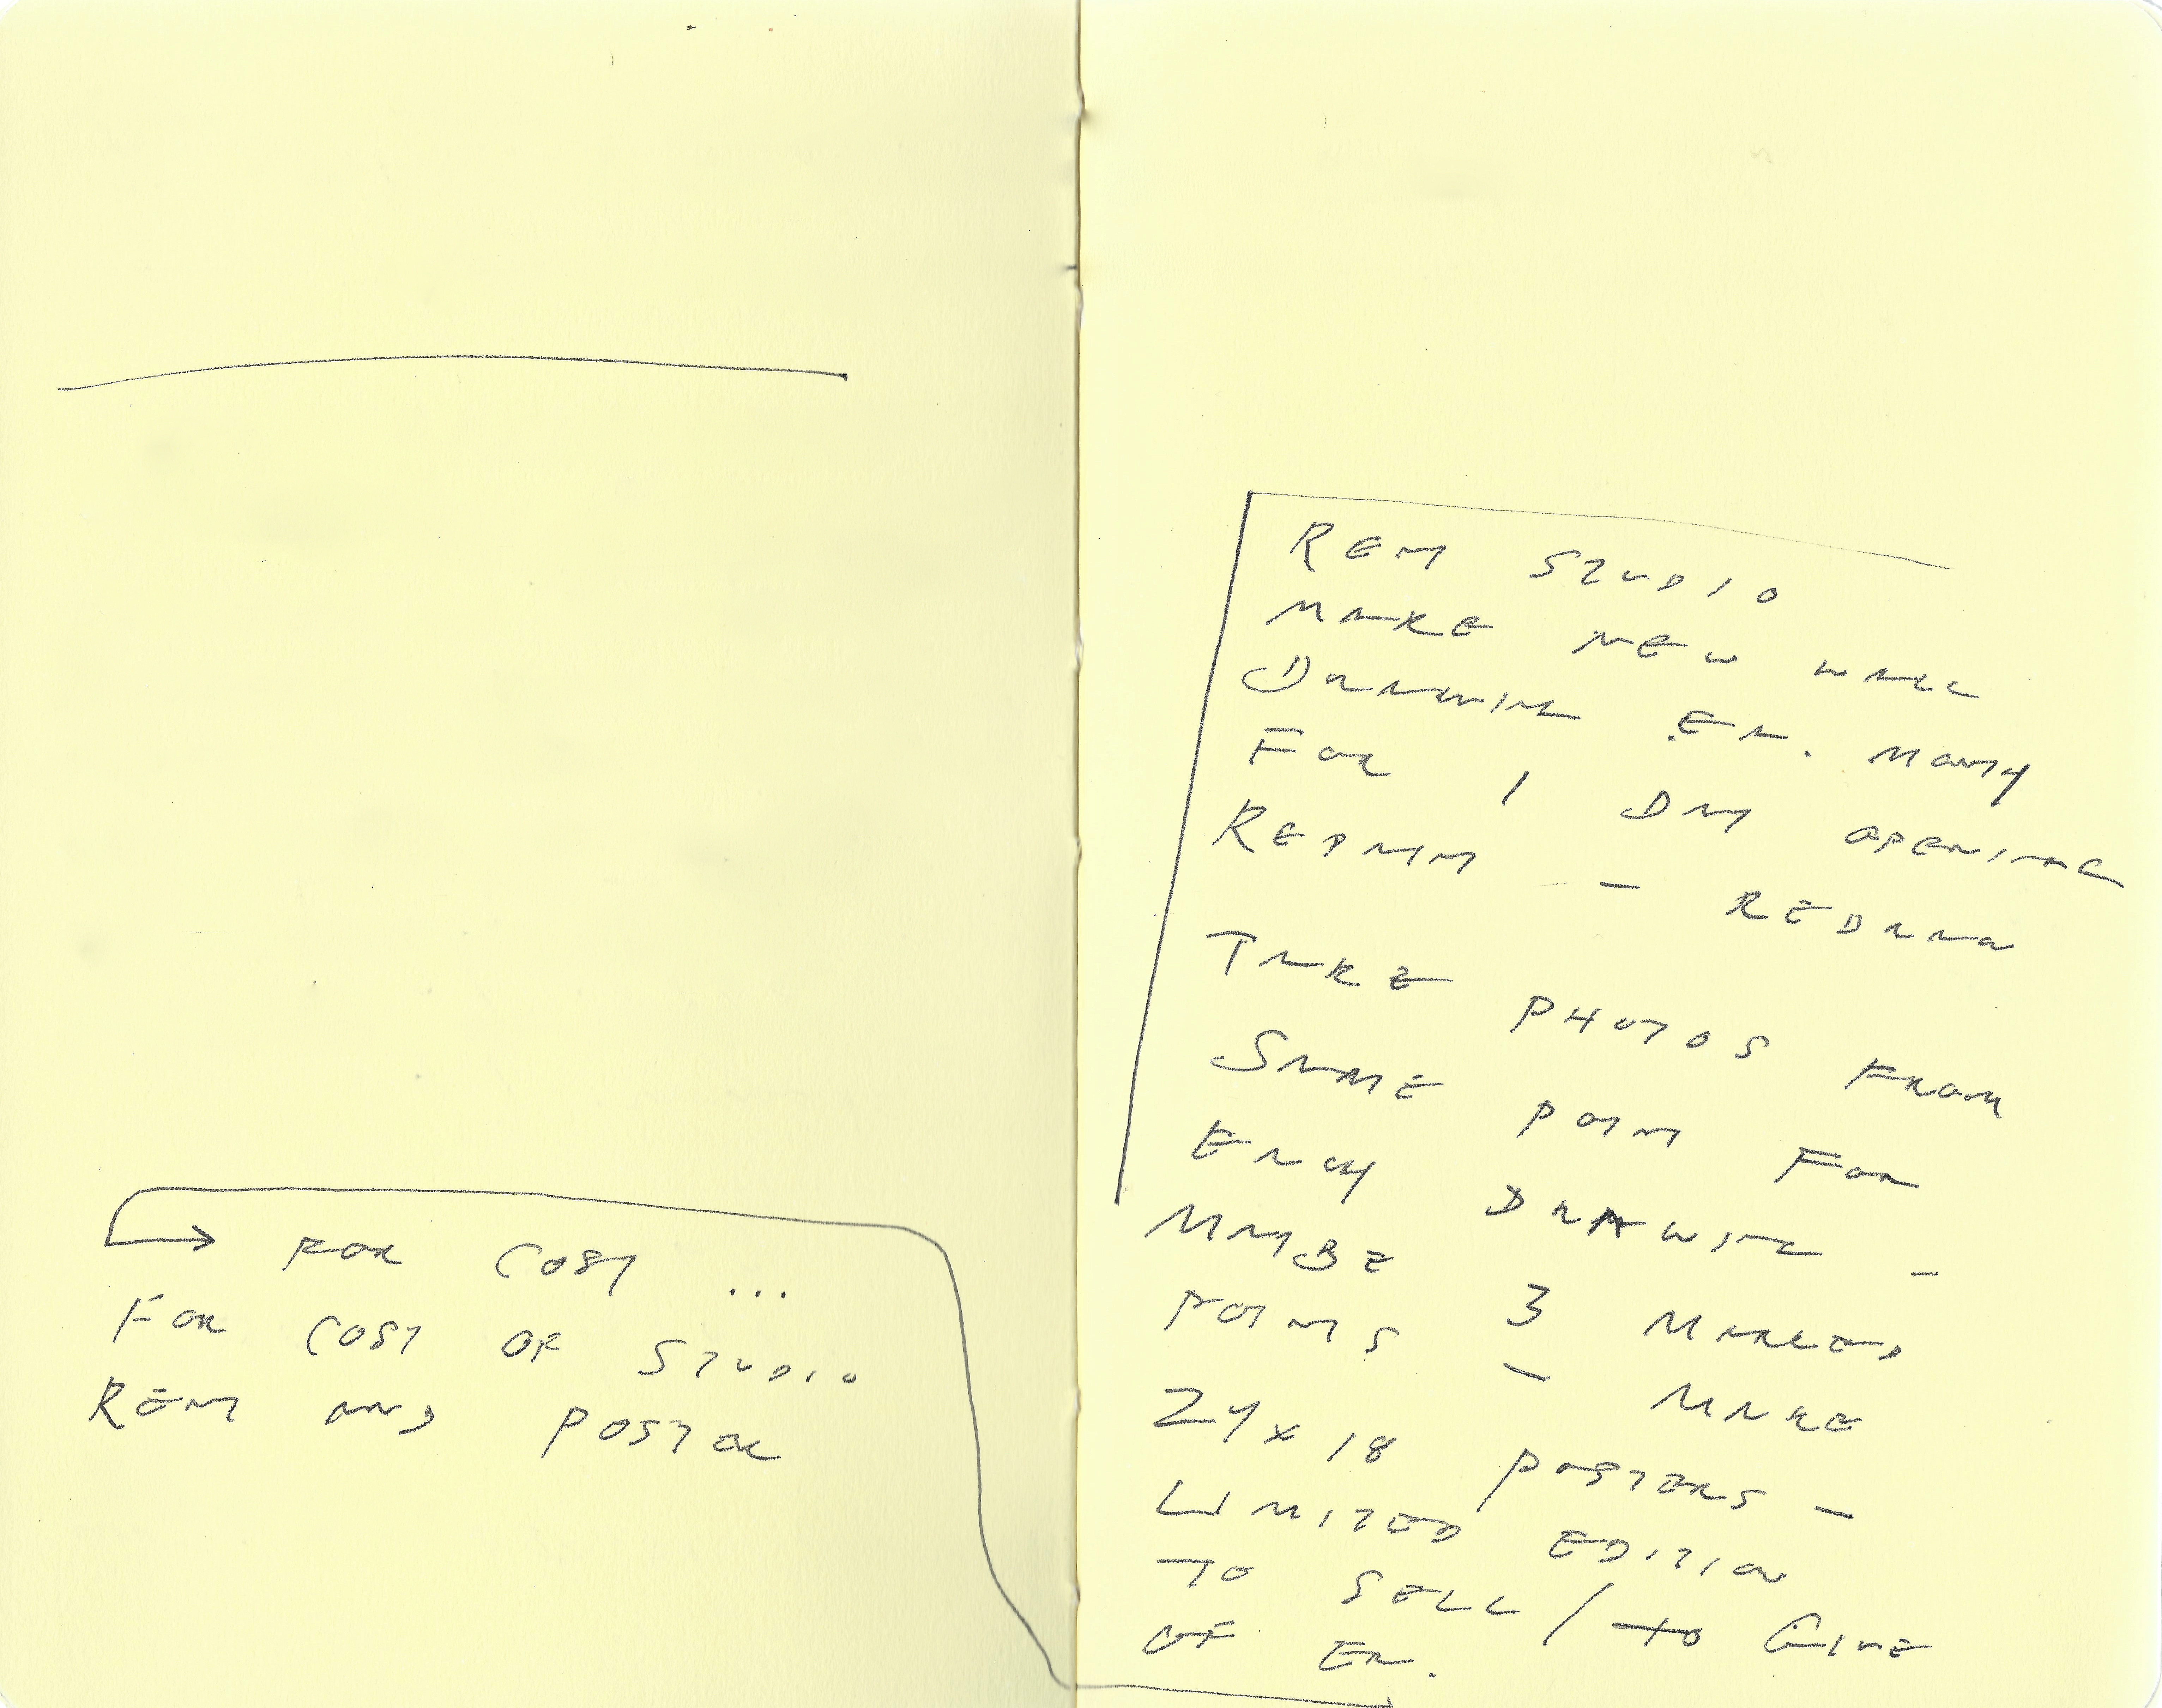 RENT STUDIO
MAKE NEW WALL
DRAWING EA. MONTH
FOR 1 DAY OPENING
REPAINT — REDRAW
TAKE PHOTOS FROM
SAME POINT FOR
EACH DRAWING —
MAYBE 3 MARKED
POINTS — MAKE
24 x 18 POSTERS —
LIMITED EDITION
TO SELL / to GIVE
OF EA.
FOR COST ...
FOR COST OF STUDIO
RENT AND POSTER